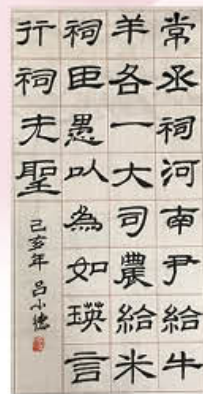 常丞祠河南尹給牛
羊各一大司農給米
祠臣愚以為如瑛言
行祠先聖
己亥年 呂小德